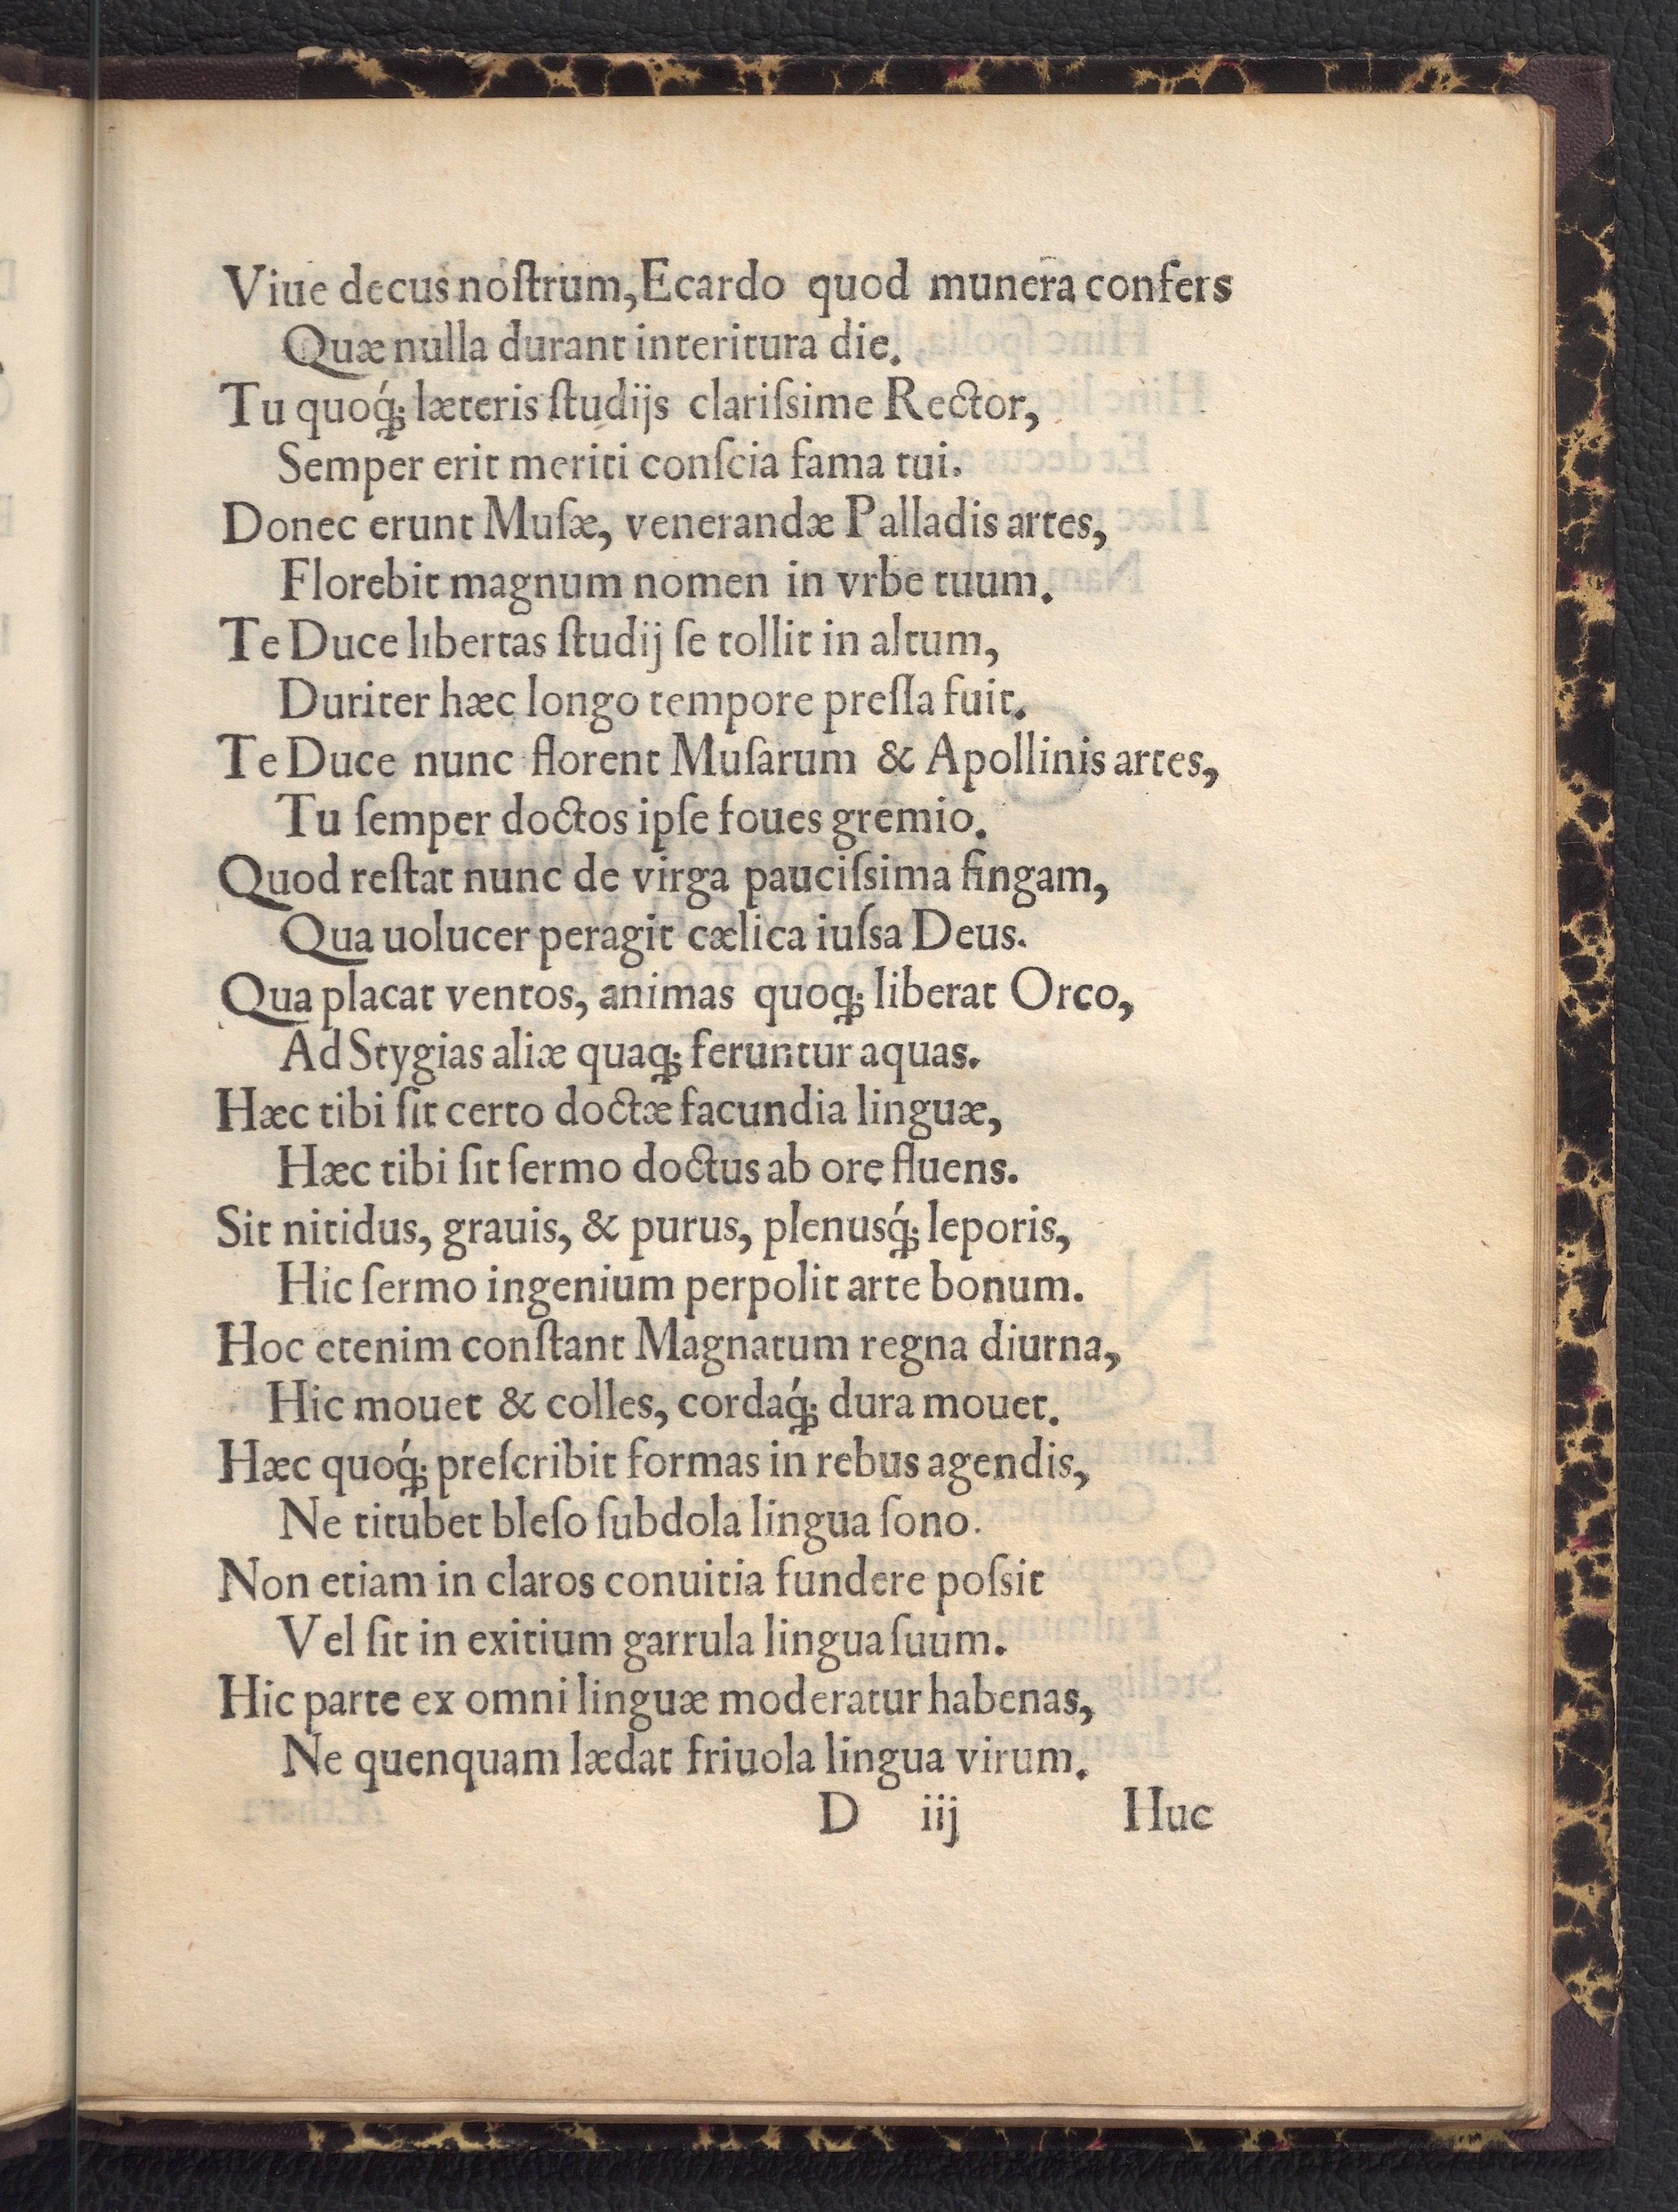 Viue decus noſtrum, Ecardo quod munera confers
Quæ nulla durant interitura die.
Tu quoq́; læteris ſtudijs clariſsime Rector,
Semper erit meriti conſcia fama tui.
Donec erunt Muſæ, venerandæ Palladis artes,
Florebit magnum nomen in vrbe tuum.
Te Duce libertas ſtudij ſe tollit in altum,
Duriter hæc longo tempore preſſa fuit.
Te Duce nunc florent Muſarum & Apollinis artes,
Tu ſemper doctos ipſe foues gremio.
Quod reſtat nunc de virga pauciſsima fingam,
Qua uolucer peragit cælica iuſsa Deus.
Qua placat ventos, animas quoq; liberat Orco,
Ad Stygias aliæ quaq; feruntur aquas.
Hæc tibi ſit certo doctæ facundia linguæ,
Hæc tibi ſit ſermo doctus ab ore fluens.
Sit nitidus, grauis, & purus, plenusq́; leporis,
Hic ſermo ingenium perpolit arte bonum.
Hoc etenim conſtant Magnatum regna diurna,
Hic mouet & colles, cordaq́; dura mouet.
Hæc quoq́; preſcribit formas in rebus agendis,
Ne titubet bleſo ſubdola lingua ſono.
Non etiam in claros conuitia fundere poſsit
Vel ſit in exitium garrula lingua ſuum.
Hic parte ex omni linguæ moderatur habenas,
Ne quenquam lædat friuola lingua virum.
D iij Huc